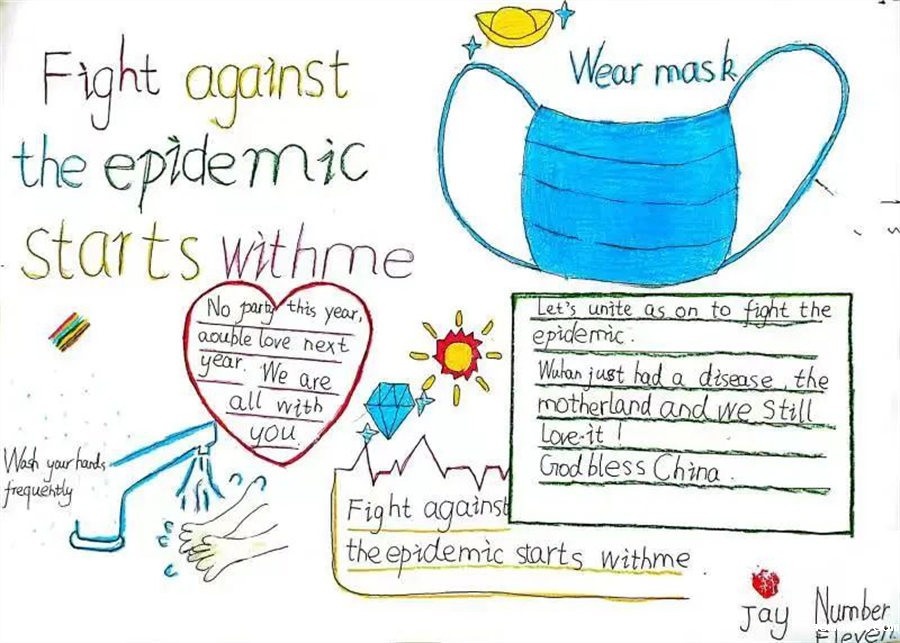 Fight against
the epidemic
starts withme
Wear mask
No party this year,
aouble love next
year. We are
all with
you
Let's unite as on to fight the
epidemic.
Wuhan just had a disease, the
motherland and we Still
Love it!
God bless China.
Wash your hands
frequently
Fight against
the epidemic starts withme.
Jay Number
Eleven